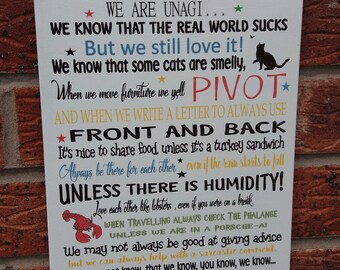 WE ARE UNAGI...
WE KNOW THAT THE REAL WORLD SUCKS
But we still love it!
We know that some cats are smelly,
When we move furniture we yell PIVOT
AND WHEN WE WRITE A LETTER TO ALWAYS USE
FRONT AND BACK
It's nice to share food, unless it's a turkey sandwich
Always be there for each other even if the rain starts to fall
UNLESS THERE IS HUMIDITY!
Love each other like lobsters, even if you were on a break
WHEN TRAVELLING ALWAYS CHECK THE PHALANGE
UNLESS WE ARE IN A PORSCHE-A!
We may not always be good at giving advice
but we can always help with a sarcastic comment.
know, that we know, you know, we know...